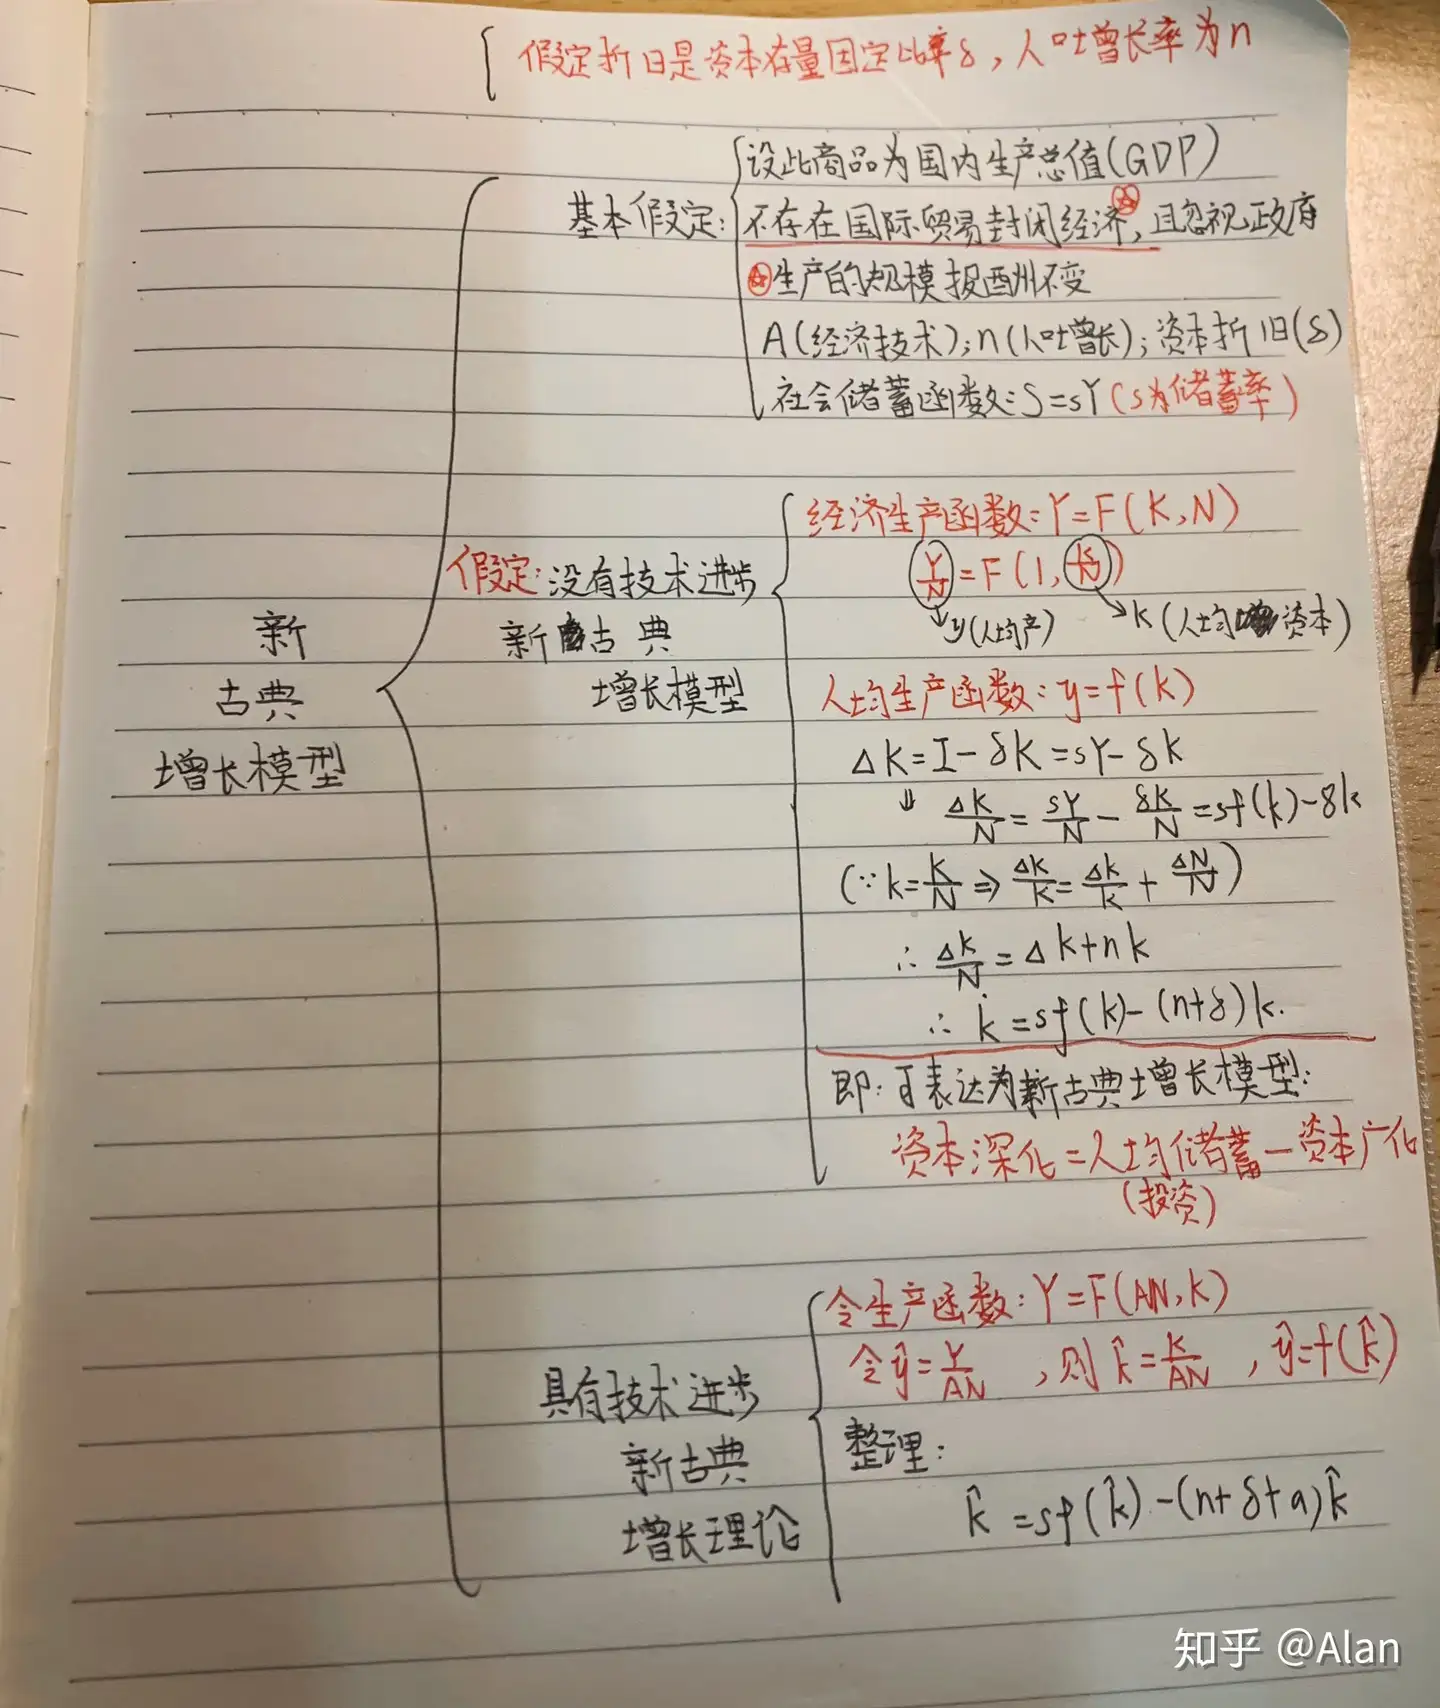 假定折旧是资本存量固定比率δ，人口增长率为n
设此商品为国内生产总值(GDP)
基本假定：
不存在国际贸易封闭经济，且忽视政府
生产的规模报酬不变
A(经济技术)；n(人口增长)；资本折旧(δ)
社会储蓄函数：S=sY(s为储蓄率)
经济生产函数：Y=F(K,N)
Y/N=F(1,K/N)
y(人均产)
k(人均资本)
假定：没有技术进步
新古典
增长模型
人均生产函数：y=f(k)
ΔK=I-δK=sY-δK
⇓ ΔK/N=sY/N-δK/N=sf(k)-δk
(∵k=K/N⇒ΔK/K=Δk/k+ΔN/N)
∴ΔK/N=Δk+nk
∴k̇=sf(k)-(n+δ)k.
即：可表达为新古典增长模型：
资本深化=人均储蓄-资本广化
(投资)
新
古典
增长模型
令生产函数：Y=F(AN,K)
令ŷ=Y/AN，则k̂=K/AN，ŷ=f(k̂)
具有技术进步
新古典
增长理论
整理：
k̂=sf(k̂)-(n+δ+a)k̂
知乎 @Alan